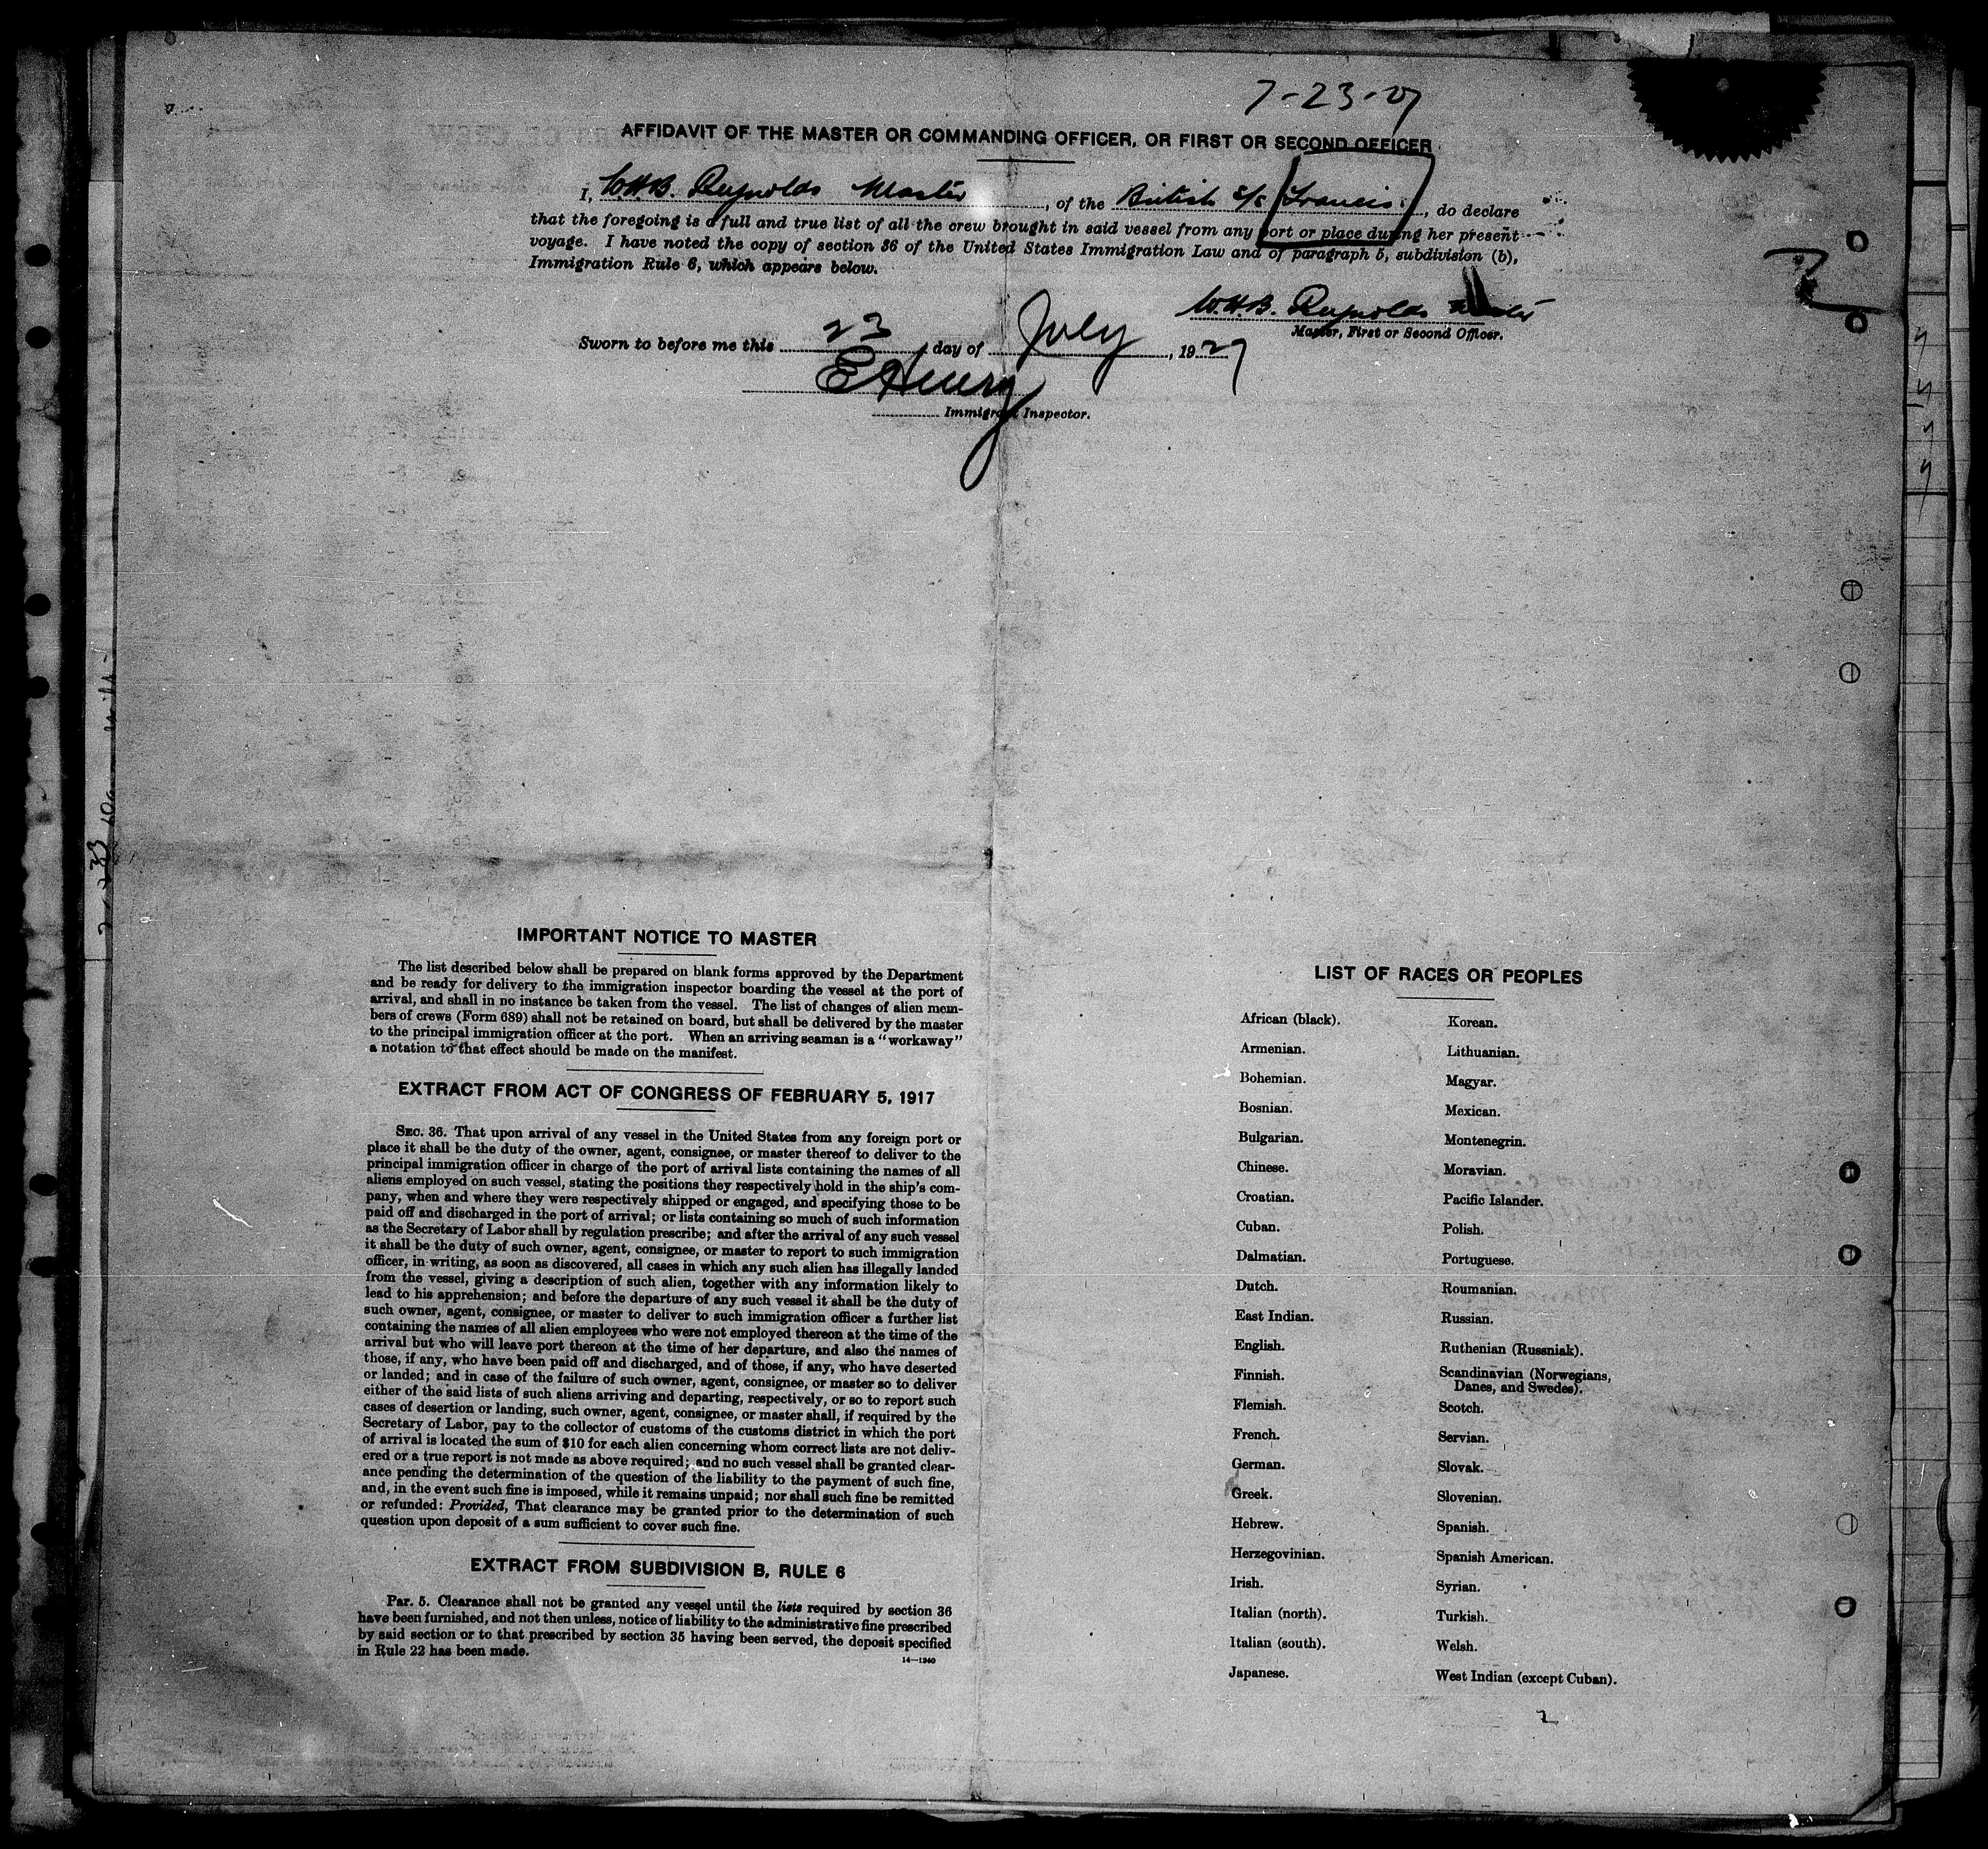 7-23-27
AFFIDAVIT OF THE MASTER OR COMMANDING OFFICER, OR FIRST OR SECOND OFFICER
I, W.H.B. Reynolds Master, of the British s/s Francis, do declare
that the foregoing is a full and true list of all the crew brought in said vessel from any port or place during her present
voyage. I have noted the copy of section 36 of the United States Immigration Law and of paragraph 5, subdivision (b),
Immigration Rule 6, which appears below.
W.H.B. Reynolds Master
Master, First or Second Officer.
Sworn to before me this 23 day of July, 1927
E Henry
Immigrant Inspector.
IMPORTANT NOTICE TO MASTER
The list described below shall be prepared on blank forms approved by the Department
and be ready for delivery to the immigration inspector boarding the vessel at the port of
arrival, and shall in no instance be taken from the vessel. The list of changes of alien mem-
bers of crews (Form 689) shall not be retained on board, but shall be delivered by the master
to the principal immigration officer at the port. When an arriving seaman is a "workaway"
a notation to that effect should be made on the manifest.
EXTRACT FROM ACT OF CONGRESS OF FEBRUARY 5, 1917
SEC. 36. That upon arrival of any vessel in the United States from any foreign port or
place it shall be the duty of the owner, agent, consignee, or master thereof to deliver to the
principal immigration officer in charge of the port of arrival lists containing the names of all
aliens employed on such vessel, stating the positions they respectively hold in the ship's com-
pany, when and where they were respectively shipped or engaged, and specifying those to be
paid off and discharged in the port of arrival; or lists containing so much of such information
as the Secretary of Labor shall by regulation prescribe; and after the arrival of any such vessel
it shall be the duty of such owner, agent, consignee, or master to report to such immigration
officer, in writing, as soon as discovered, all cases in which any such alien has illegally landed
from the vessel, giving a description of such alien, together with any information likely to
lead to his apprehension; and before the departure of any such vessel it shall be the duty of
such owner, agent, consignee, or master to deliver to such immigration officer a further list
containing the names of all alien employees who were not employed thereon at the time of the
arrival but who will leave port thereon at the time of her departure, and also the names of
those, if any, who have been paid off and discharged, and of those, if any, who have deserted
or landed; and in case of the failure of such owner, agent, consignee, or master so to deliver
either of the said lists of such aliens arriving and departing, respectively, or so to report such
cases of desertion or landing, such owner, agent, consignee, or master shall, if required by the
Secretary of Labor, pay to the collector of customs of the customs district in which the port
of arrival is located the sum of $10 for each alien concerning whom correct lists are not deliv-
ered or a true report is not made as above required; and no such vessel shall be granted clear-
ance pending the determination of the question of the liability to the payment of such fine,
and, in the event such fine is imposed, while it remains unpaid; nor shall such fine be remitted
or refunded: Provided, That clearance may be granted prior to the determination of such
question upon deposit of a sum sufficient to cover such fine.
EXTRACT FROM SUBDIVISION B, RULE 6
Par. 5. Clearance shall not be granted any vessel until the lists required by section 36
have been furnished, and not then unless, notice of liability to the administrative fine prescribed
by said section or to that prescribed by section 35 having been served, the deposit specified
in Rule 22 has been made.
14—1240
LIST OF RACES OR PEOPLES
African (black).
Armenian.
Bohemian.
Bosnian.
Bulgarian.
Chinese.
Croatian.
Cuban.
Dalmatian.
Dutch.
East Indian.
English.
Finnish.
Flemish.
French.
German.
Greek.
Hebrew.
Herzegovinian.
Irish.
Italian (north).
Italian (south).
Japanese.
Korean.
Lithuanian.
Magyar.
Mexican.
Montenegrin.
Moravian.
Pacific Islander.
Polish.
Portuguese.
Roumanian.
Russian.
Ruthenian (Russniak).
Scandinavian (Norwegians,
Danes, and Swedes).
Scotch.
Servian.
Slovak.
Slovenian.
Spanish.
Spanish American.
Syrian.
Turkish.
Welsh.
West Indian (except Cuban).
2